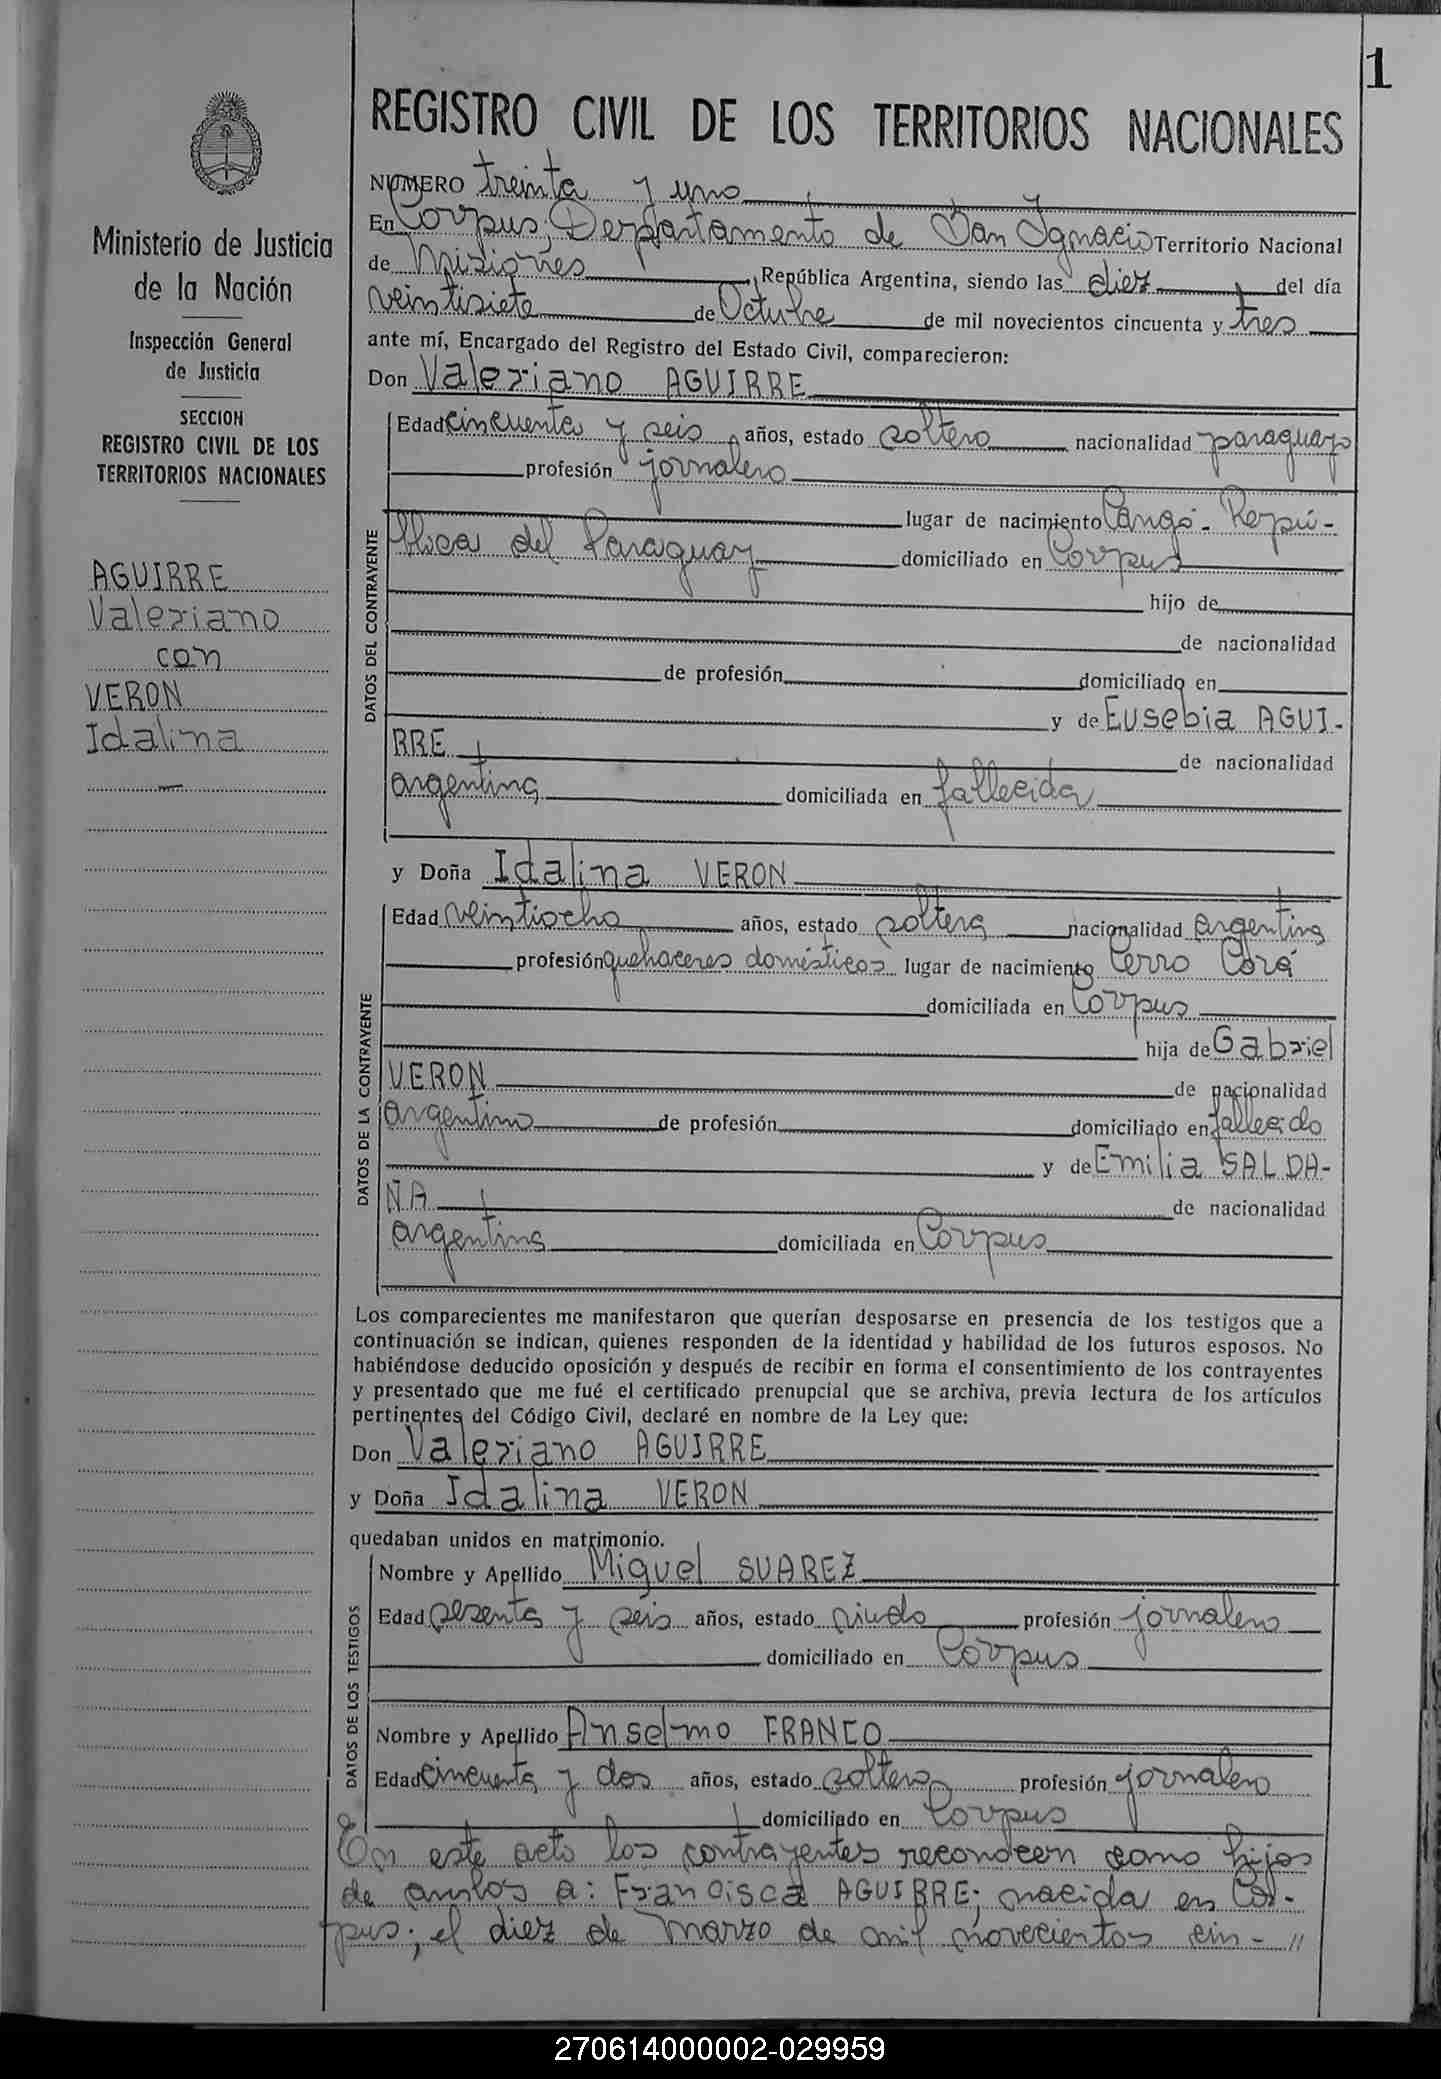 1
REGISTRO CIVIL DE LOS TERRITORIOS NACIONALES
Ministerio de Justicia
de la Nación
Inspección General
de Justicia
SECCION
REGISTRO CIVIL DE LOS
TERRITORIOS NACIONALES
AGUIRRE
Valeriano
con
VERON
Idalina
NUMERO treinta y uno
En Corpus, Departamento de San Ignacio Territorio Nacional
de Misiones, República Argentina, siendo las diez del día
veintisiete de Octubre de mil novecientos cincuenta y tres
ante mí, Encargado del Registro del Estado Civil, comparecieron:
Don Valeriano AGUIRRE
DATOS DEL CONTRAYENTE
Edad cincuenta y seis años, estado soltero nacionalidad paraguayo
profesión jornalero
lugar de nacimiento Cangó - Repú-
blica del Paraguay domiciliado en Corpus
hijo de
de nacionalidad
de profesión domiciliado en
y de Eusebia AGUI-
RRE de nacionalidad
argentina domiciliada en fallecida
y Doña Idalina VERON
DATOS DE LA CONTRAYENTE
Edad veintiocho años, estado soltera nacionalidad argentina
profesión quehaceres domésticos lugar de nacimiento Cerro Corá
domiciliada en Corpus
hija de Gabriel
VERON de nacionalidad
argentino de profesión domiciliado en fallecido
y de Emilia SALDA-
ÑA de nacionalidad
argentina domiciliada en Corpus
Los comparecientes me manifestaron que querían desposarse en presencia de los testigos que a
continuación se indican, quienes responden de la identidad y habilidad de los futuros esposos. No
habiéndose deducido oposición y después de recibir en forma el consentimiento de los contrayentes
y presentado que me fué el certificado prenupcial que se archiva, previa lectura de los artículos
pertinentes del Código Civil, declaré en nombre de la Ley que:
Don Valeriano AGUIRRE
y Doña Idalina VERON
quedaban unidos en matrimonio.
DATOS DE LOS TESTIGOS
Nombre y Apellido Miguel SUAREZ
Edad sesenta y seis años, estado viudo profesión jornalero
domiciliado en Corpus
Nombre y Apellido Anselmo FRANCO
Edad cincuenta y dos años, estado soltero profesión jornalero
domiciliado en Corpus
En este acto los contrayentes reconocen como hijos
de ambos a: Francisca AGUIRRE; nacida en Cor-
pus; el diez de Marzo de mil novecientos cin- //
270614000002-029959